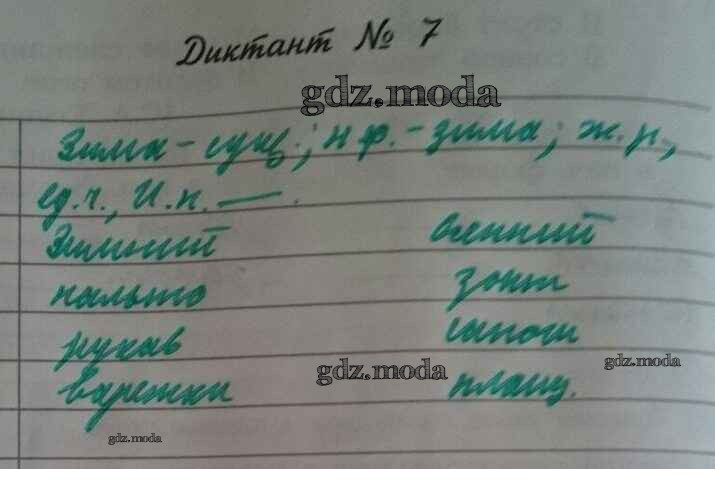 Диктант № 7
gdz.moda
Зима – сущ.; н.ф. – зима; ж.р.,
ед.ч., И.п. —.
Зимний осенний
пальто зонт
рукав сапоги
gdz.moda
варежки плащ.
gdz.moda
gdz.moda